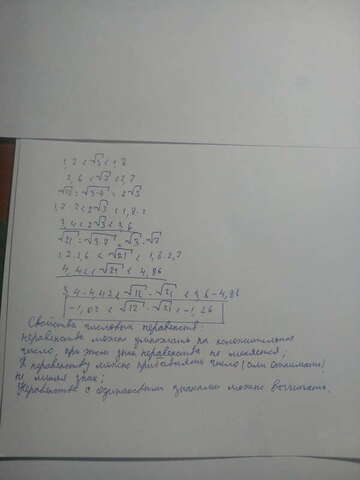 1,7 < √3 < 1,8
2,6 < √7 < 2,7
√12 = √3·4 = 2√3
1,7·2 < 2√3 < 1,8·2
3,4 < 2√3 < 3,6
√21 = √3·7 = √3·√7
1,7·2,6 < √21 < 1,8·2,7
4,42 < √21 < 4,86
3,4-4,42 < √12 - √21 < 3,6-4,86
-1,02 < √12 - √21 < -1,26
Свойства числовых неравенств
Неравенства можно умножать на положительное
число, при этом знак неравенства не меняется;
К неравенству можно прибавлять число (или отнимать)
не меняя знак;
Неравенства с одинаковыми знаками можно вычитать.